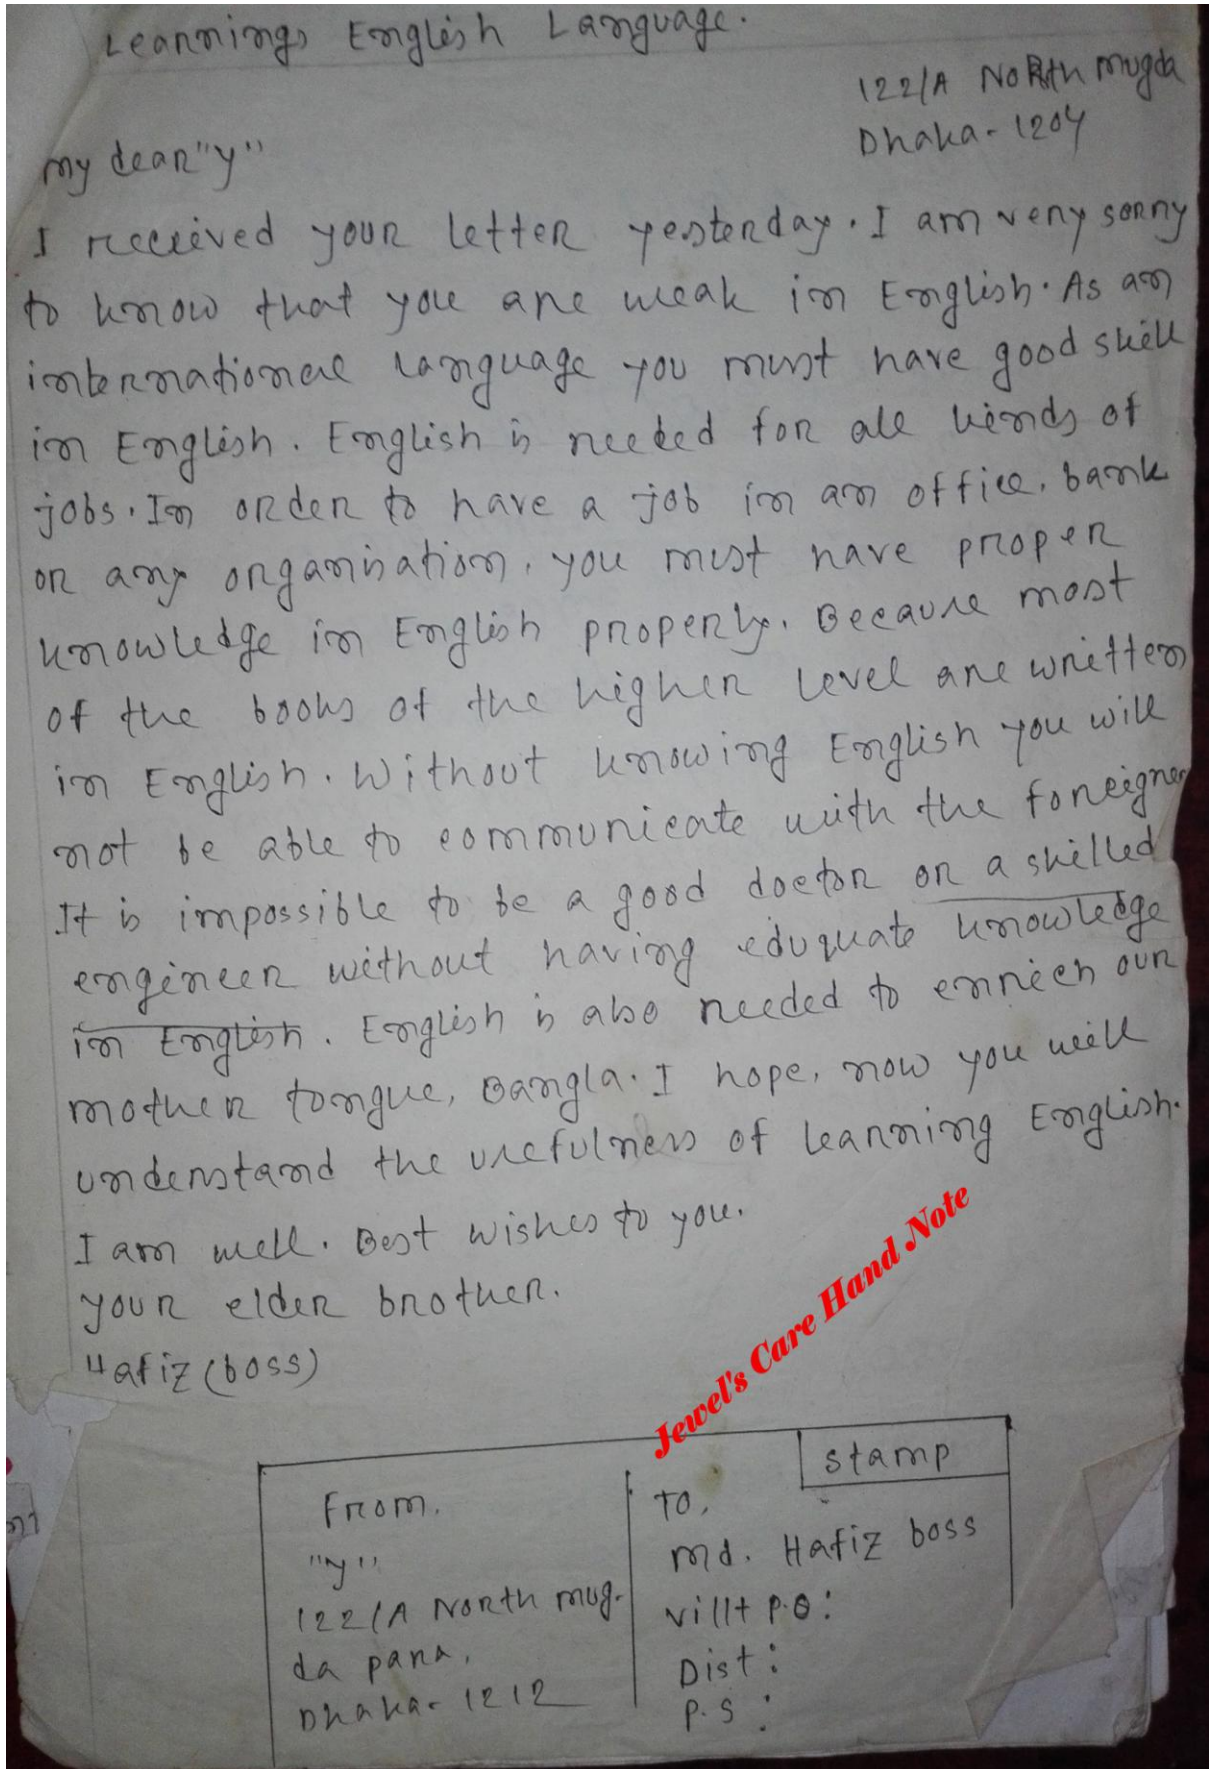 Learnings English Language.
122/A North mugda
Dhaka - 1204
my dear "y"
I received your letter yesterday. I am very sorry
to know that you are weak in English. As an
international language you must have good skill
in English. English is needed for all kinds of
jobs. In order to have a job in an office, bank
or any organisation, you must have proper
knowledge in English properly. Because most
of the books of the higher level are written
in English. Without knowing English you will
not be able to communicate with the foreigner
It is impossible to be a good doctor or a skilled
engineer without having eduquate knowledge
in English. English is also needed to enrich our
mother tongue, Bangla. I hope, now you will
understand the usefulness of learning English.
I am well. Best wishes to you.
your elder brother.
Hafiz (boss)
Jewel's Care Hand Note
stamp
From,
"y"
122/A North mug-
da para,
Dhaka - 1212
To,
md. Hafiz boss
vill+ P.O:
Dist:
P.S: